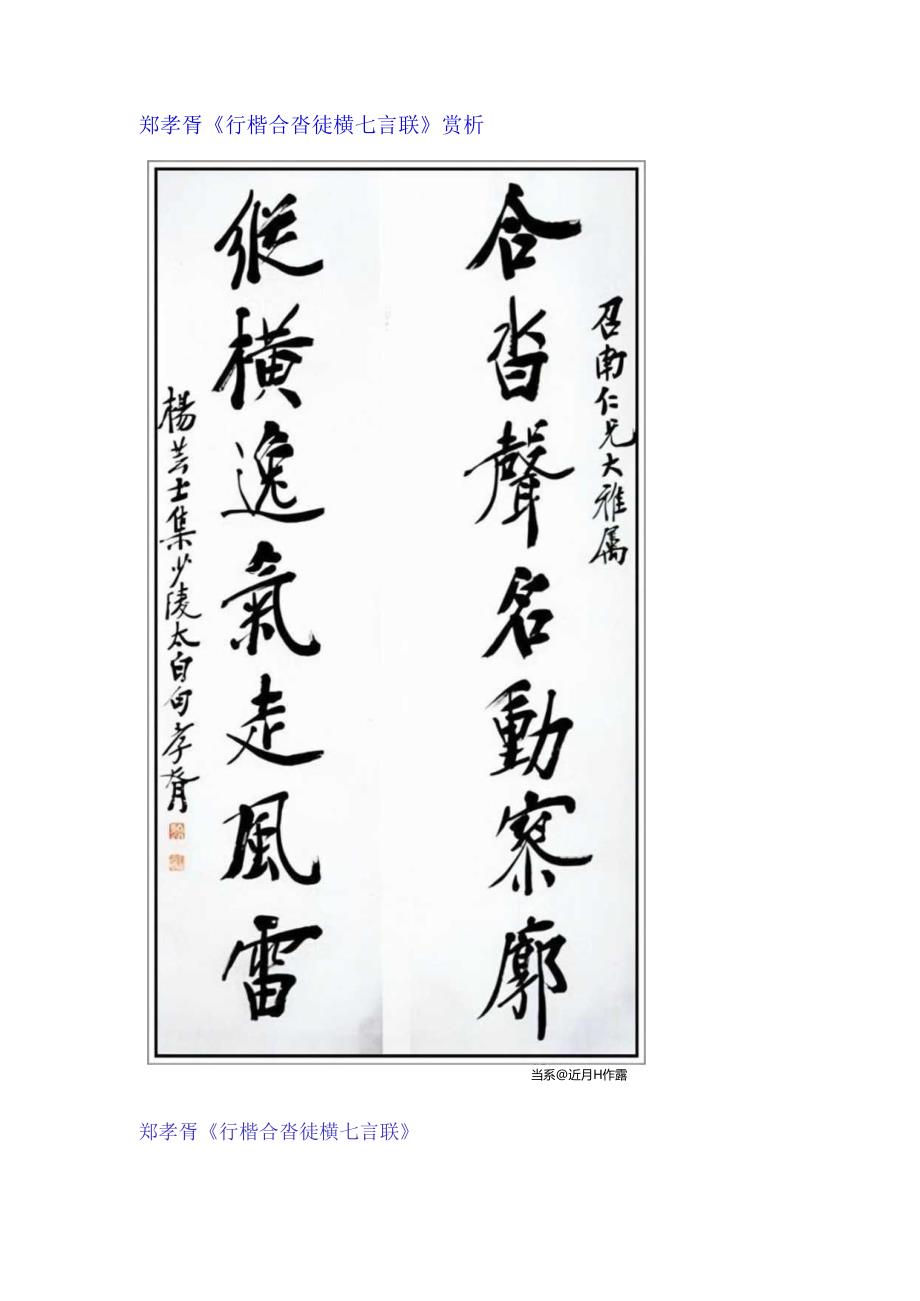 郑孝胥《行楷合沓徒横七言联》赏析
召南仁兄大雅属
合沓聲名動寥廓
縱橫逸氣走風雷
楊芸士集少陵太白句孝胥
当系@近月H作露
郑孝胥《行楷合沓徒横七言联》